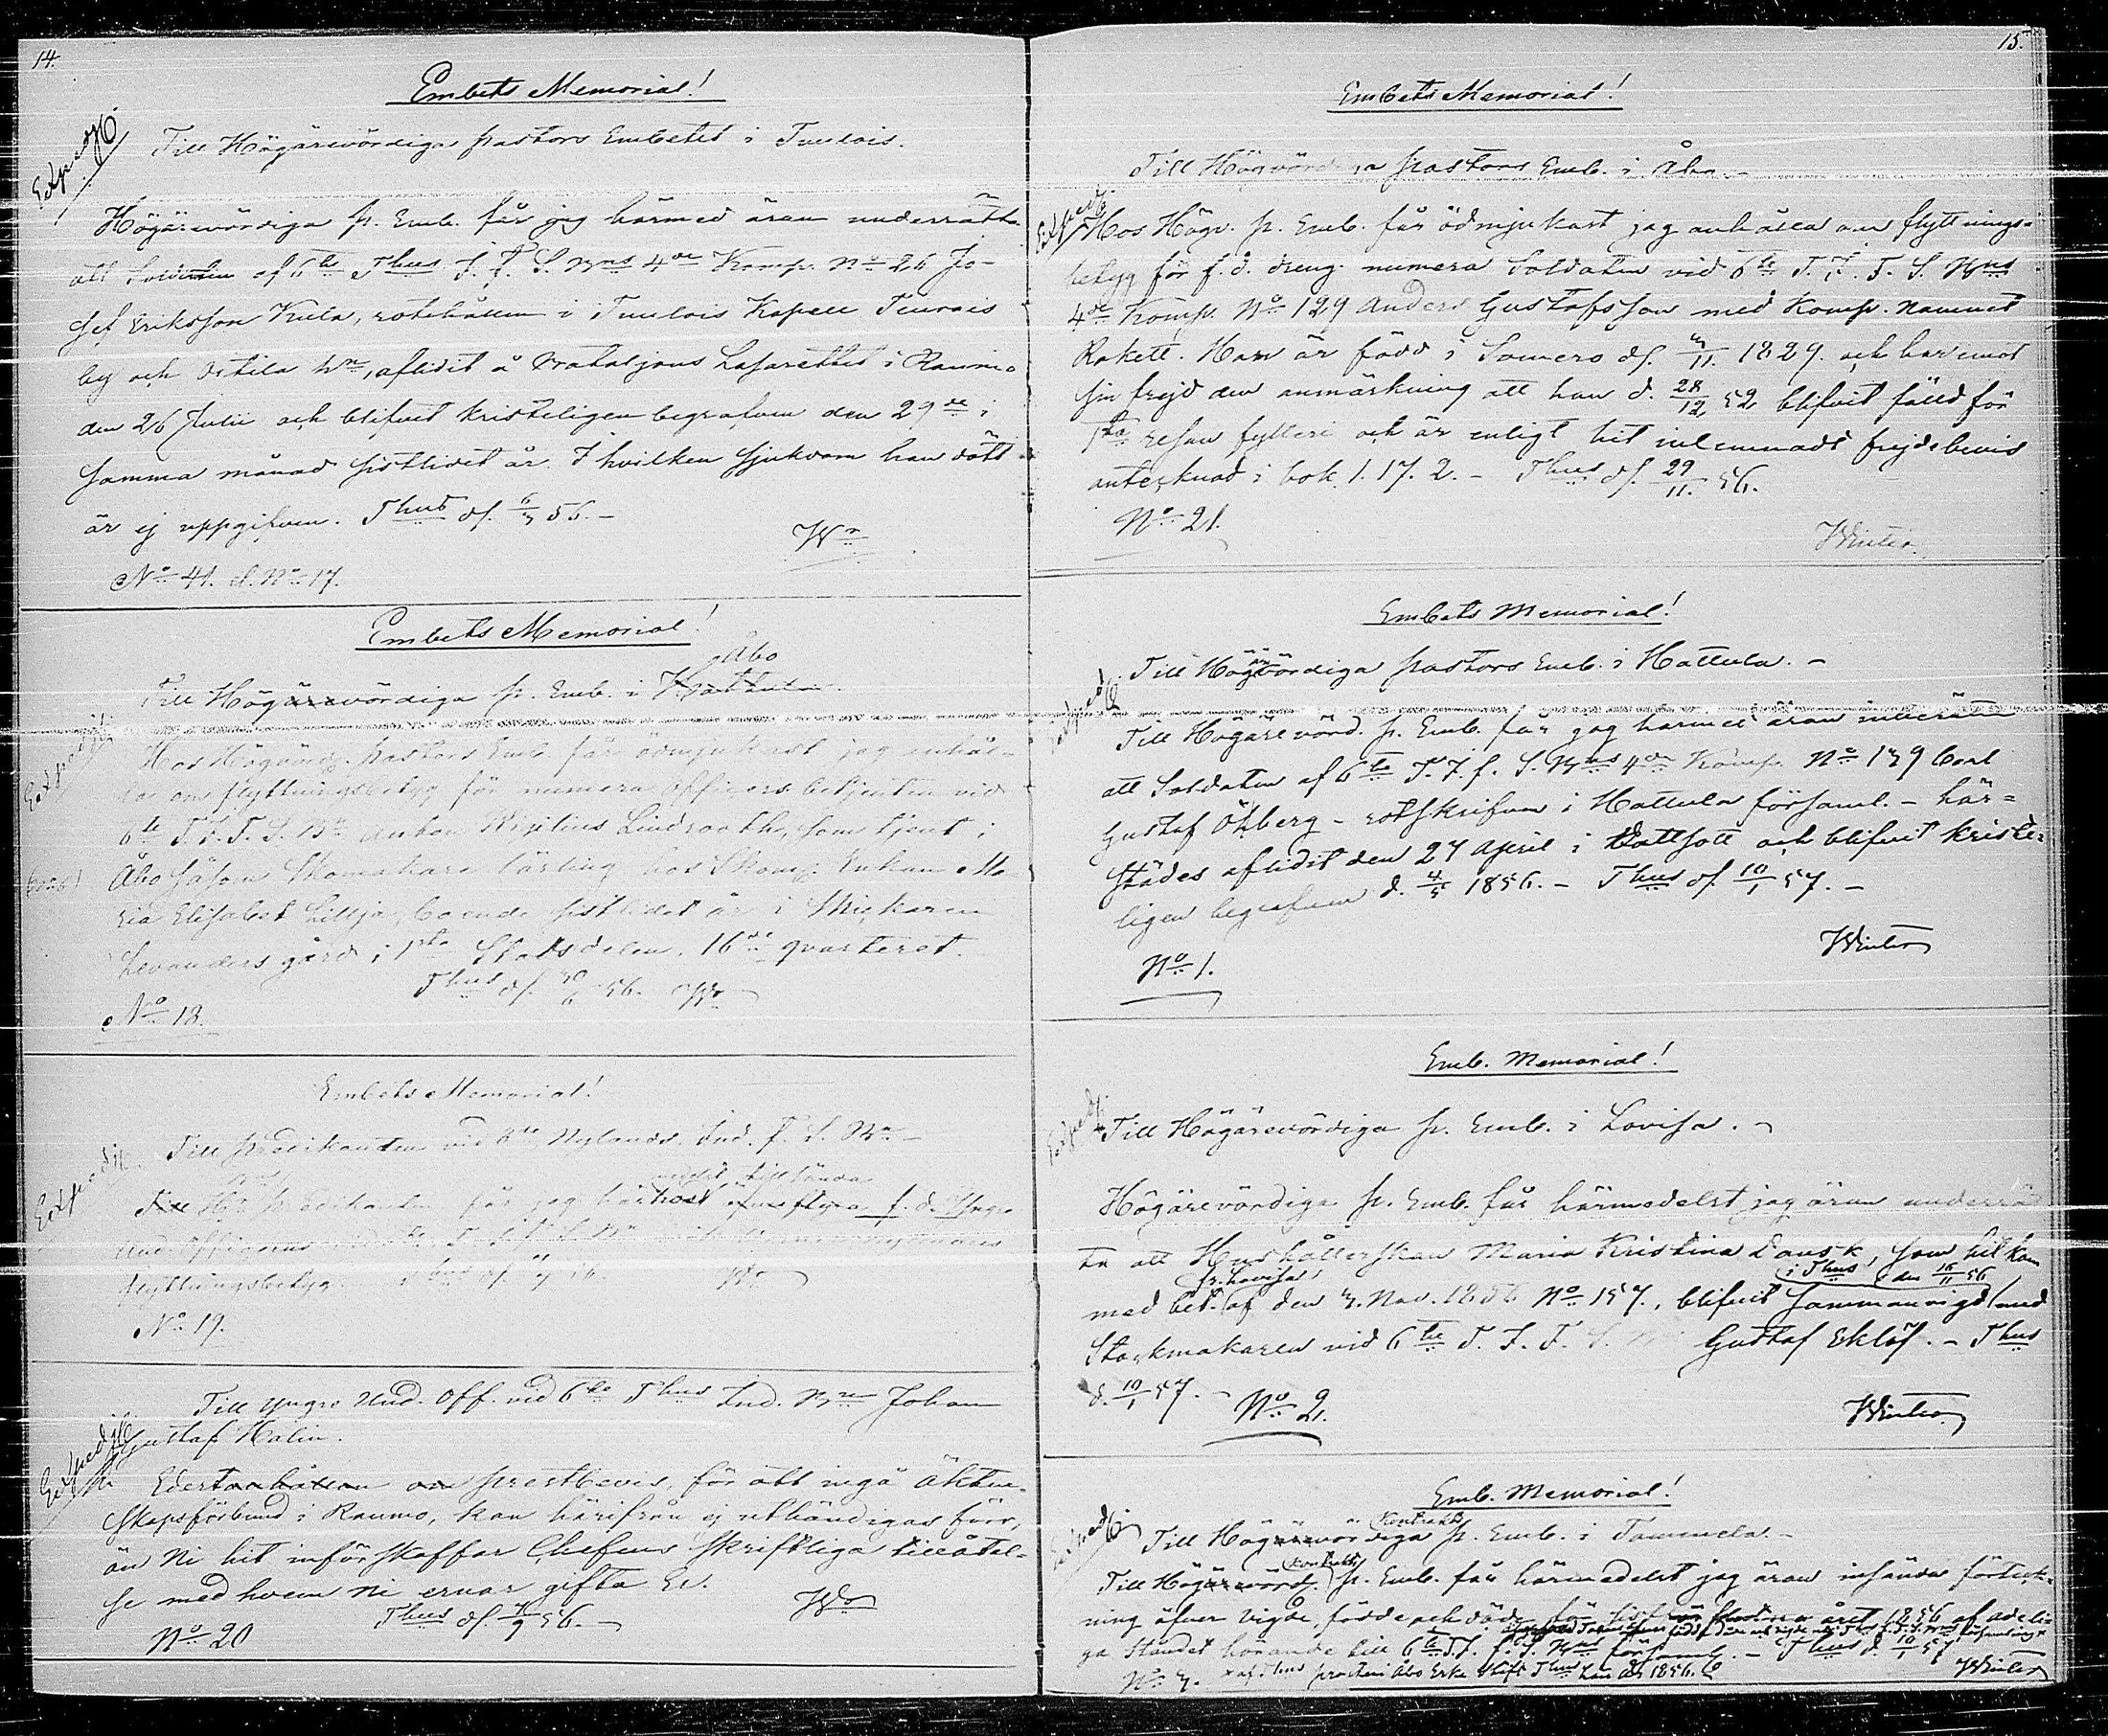 14.
Embets Memorial!
Expedit
Till Högärevördiga pastors Embetet i Tuulois.
Högärevördiga p. Emb. får jag härmed äran underrätta
att Soldaten af 6te Thus I. F. S. Bns 4de Komp. No 26 Jo-
sef Eriksson Kula, rotehållen i Tuulois Kapell Teurois
by och Ertila hn, aflidit å Bataljons Lasarettet i Raumo
den 26 Julii och blifvit kristeligen begrafven den 29de i
samma månad sistlidet år. I hvilken sjukdom han dött
är ej uppgifven. Thus d. 6/3 56. –
Wr
No 41. d. No 17.
Embets Memorial!
Åbo
Till Högärevördiga p. Emb. i
Expedit
Hos Högvörd. pastors Emb. får ödmjukast jag anhål-
la om flyttningsbetyg för numera Officers betjenten vid
6te T. I. F. S. Bn Anton Rigilius Lindrooth, som tjent i
Åbo såsom Skomakare lärling hos Skom. Enkan Ma-
ria Elisabet Lillja, boende sistlidet år i Snickaren
Levanders gård i 1sta Stadsdelen. 16de qvarteret.
Thus d. 30/6 56. Wr
No 18.
Embets Memorial!
Till predikanten vid Nylands Ind. F. S. Bn
Expedit
medelst tillsända
Till Hr predikanten får jag här f. d. Yngre
Und. Officerns
flyttningsbetyg. Wr
No 19.
Till Yngre Und. Off. vid 6te Thus Ind. Bn Johan
Gustaf Halin.
Expedit
Edert anhållan om prestbevis, för att ingå äkten-
skapsförbund i Raumo, kan härifrån ej uthändigas förr,
än Ni hit införskaffar Chefens skriftliga tillåtel-
se med hvem Ni ernar gifta Er.
Thus d. 4/9 56. – Wr
No 20
15.
Embets Memorial!
Till Högvördiga pastors Emb. i Åbo –
Expedit
Hos Högv. p. Emb. får ödmjukast jag anhålla om flyttnings-
betyg för f. d. dreng. numera Soldaten vid 6te T. I. F. S. Bns
4de Komp. No 129 Anders Gustafsson med Komp. namnet
Rakett. Han är född i Somero d. 3/11. 1829. och har emot
sin frejd den anmärkning att han d. 28/12 52 blifvit fälld för
1sta resan fylleri och är enligt hit inlemnadt frejdebevis
antecknad i bok 1. 17. 2. – Thus d. 29/11. 56.
No 21.
Winter.
Embets Memorial!
Till Högärevördiga pastors Emb. i Hattula. –
Expedit
Till Högärevörd. p. Emb. får jag härmed äran inberätta
att Soldaten af 6te T. I. F. S. Bns 4de Komp. No 139 Carl
Gustaf Öhberg – rotskrifven i Hattula församl. – här=
städes aflidit den 27 April i Rottsott och blifvit kriste=
ligen begrafven d. 4/5 1856. – Thus d. 10/1 57. –
Winter
No 1.
Emb. Memorial!
Expedit
Till Högärevördiga p. Emb. i Lovisa. –
Högärevördiga p. Emb. får härmedelst jag äran underrät
ta att Hushållerskan Maria Kristina Dansk, som hit kom
fr. Lovisa i Thus den 16/11 56
med bet. af den 3. Nov. 1856 No 157., blifvit sammanvigd med
Stockmakaren vid 6te T. I. F. S. Bn Gustaf Eklöf. – Thus
d. 10/1 57. –
No 2.
Winter
Emb. Memorial!
Expedit
Kontrakts
Till Högärevördiga p. Emb. i Tammela. –
kontrakts
Till Högärevörd. p. Emb. får härmedelst jag äran insända förteck-
ning öfver vigde, födde och döde för året 1856 af adeli-
ga Ståndet hörande till 6te T. I. F. S. Bns församl. – Thus d. 10/1 57
No 3. x af Thus prosteri Åbo Erke Stift Thus län år 1856.
Winter